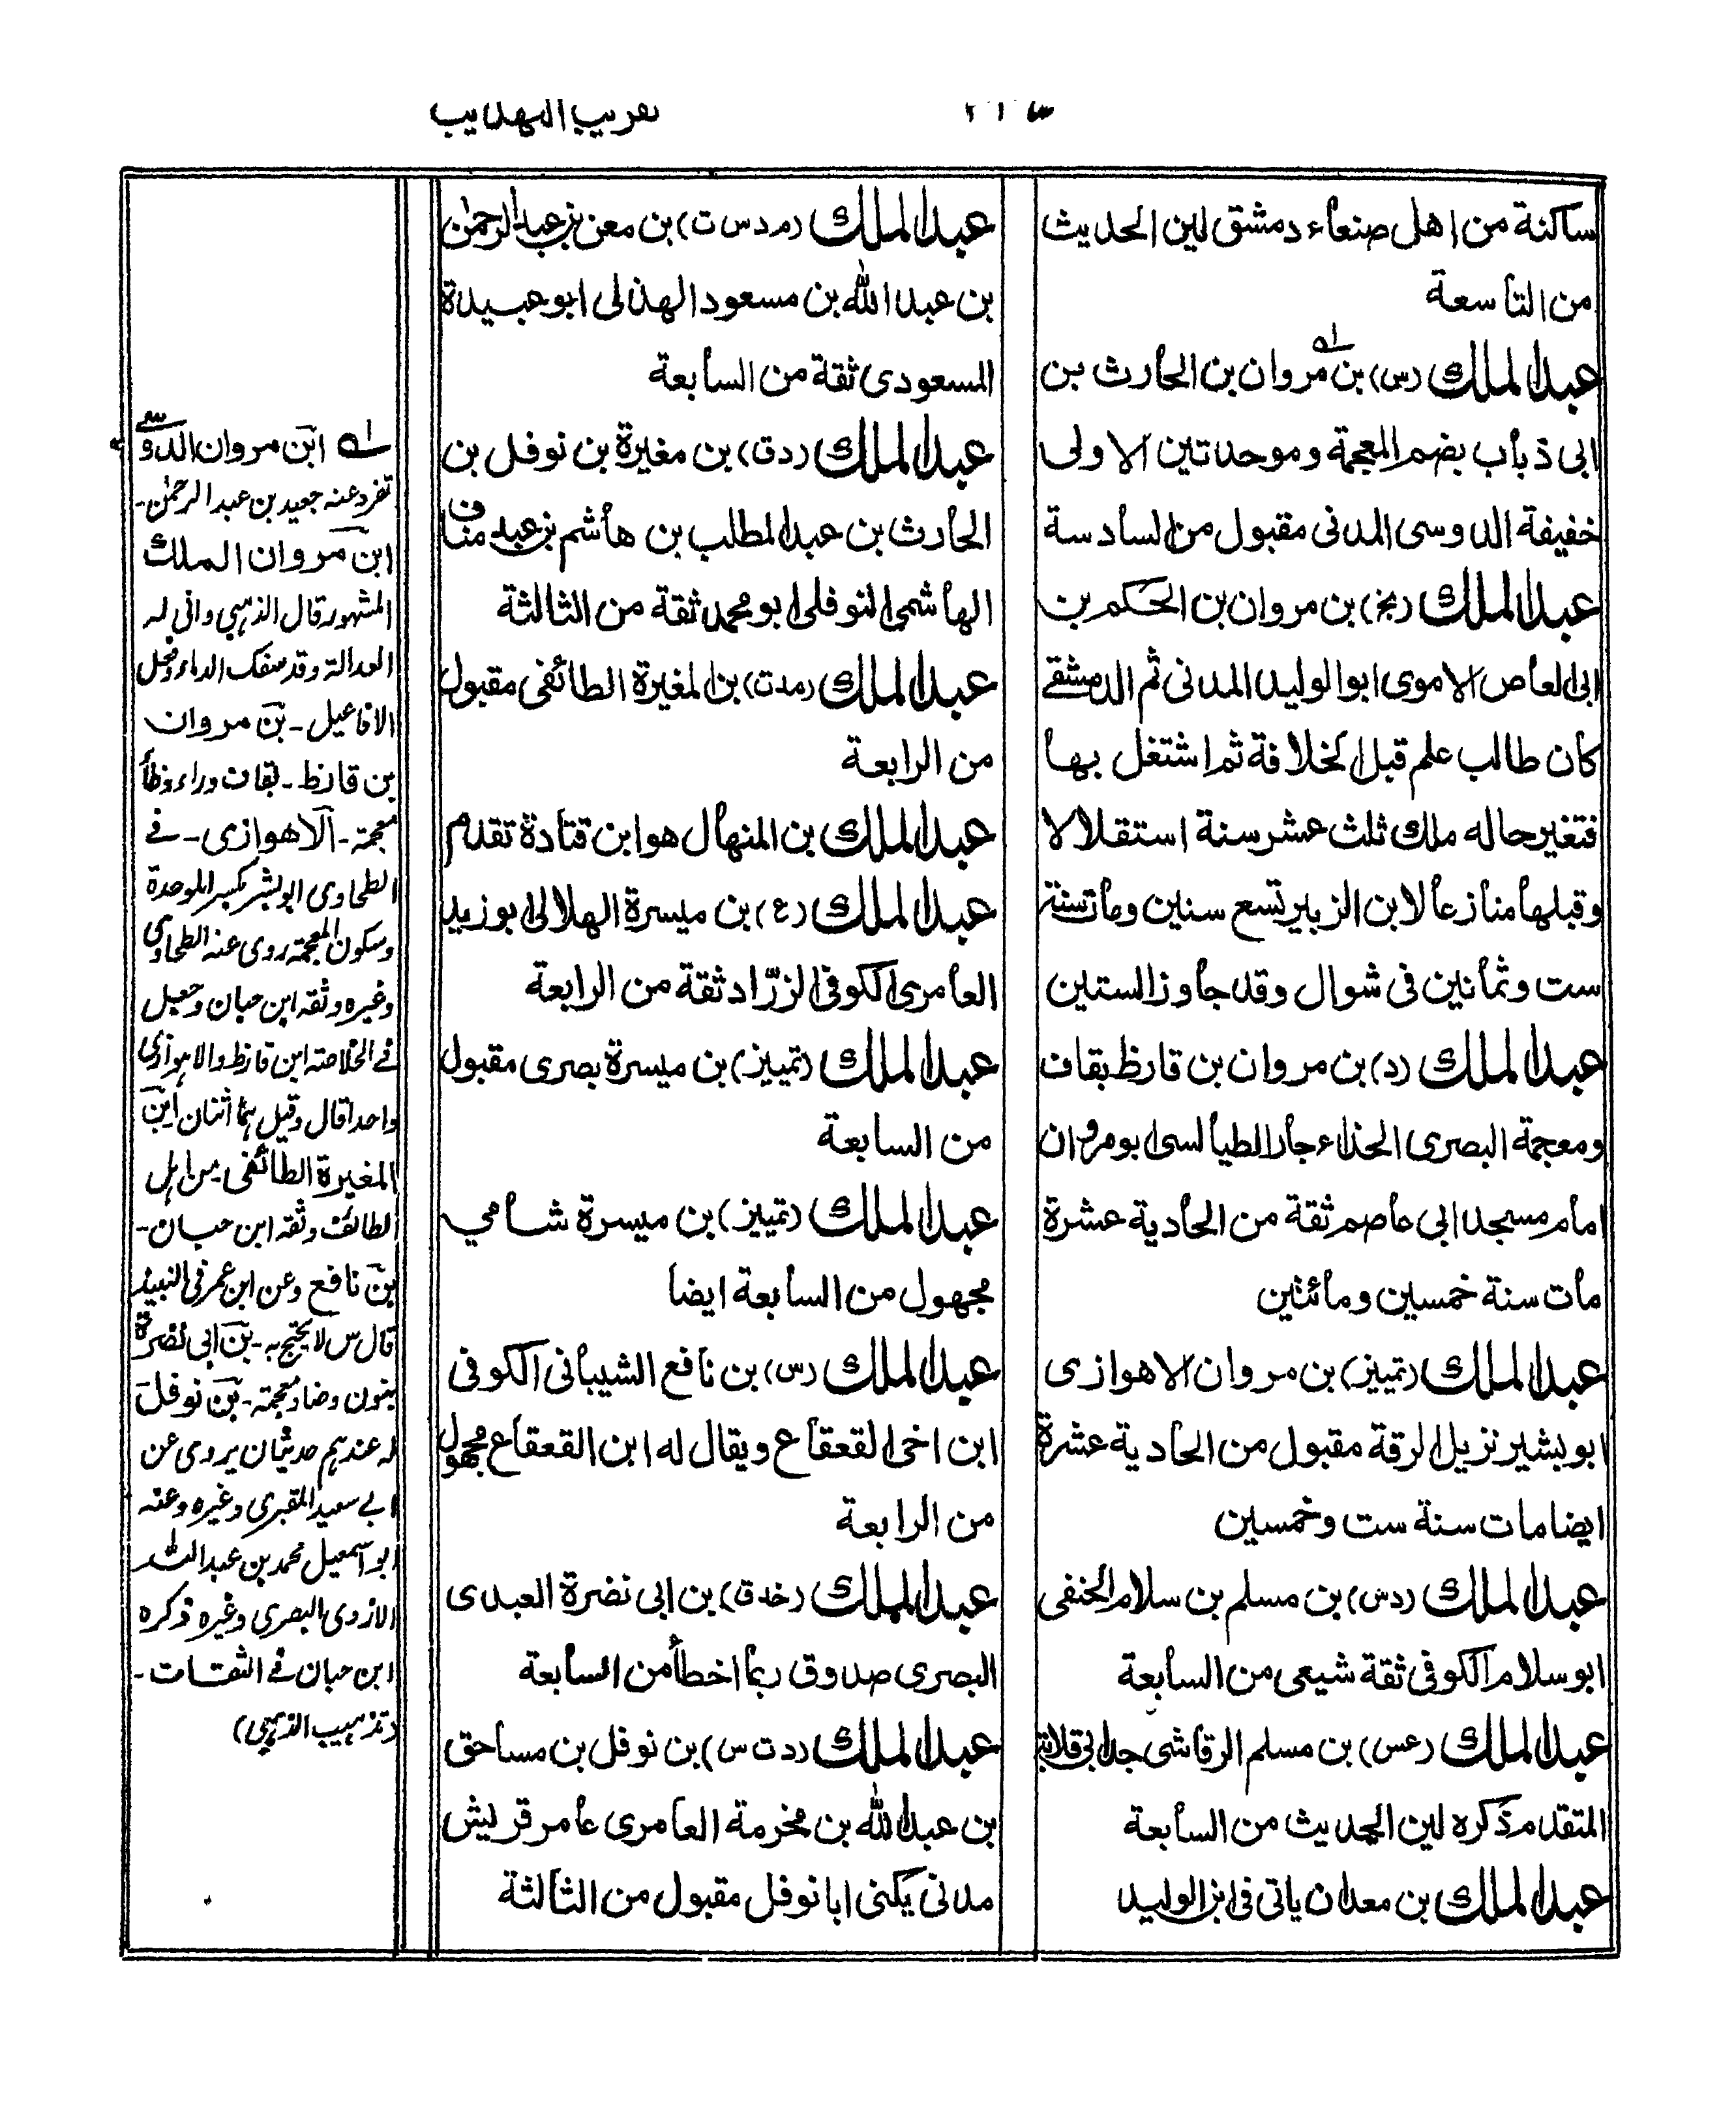 تقريب التهذيب
ساكنة من اهل صنعاء دمشق لين الحديث
من التاسعة
عبد الملك (س) بن مروان بن الحارث بن
ابى ذباب بضم المعجمة وموحدتين الاولى
خفيفة الدوسى المدنى مقبول من السادسة
عبد الملك (بخ) بن مروان بن الحكم بن
ابى العاص الاموى ابو الوليد المدنى ثم الدمشقى
كان طالب علم قبل الخلافة ثم اشتغل بها
فتغير حاله ملك ثلث عشر سنة استقلالا
وقبلها منازعا لابن الزبير تسع سنين ومات سنة
ست وثمانين فى شوال وقد جاوز الستين
عبد الملك (د) بن مروان بن قارظ بقاف
ومعجمة البصرى الحذاء جار الطيالسى ابو مروان
امام مسجد ابى عاصم ثقة من الحادية عشرة
مات سنة خمسين ومائتين
عبد الملك (تمييز) بن مروان الاهوازى
ابو بشير نزيل الرقة مقبول من الحادية عشرة
ايضا مات سنة ست وخمسين
عبد الملك (دس) بن مسلم بن سلام الحنفى
ابو سلام الكوفى ثقة شيعى من السابعة
عبد الملك (عس) بن مسلم الرقاشى جد ابى قلابة
المتقدم ذكره لين الحديث من السابعة
عبد الملك بن معدان ياتى فى ابن الوليد
عبد الملك (م د س ق) بن معن بن عبد الرحمٰن
بن عبد الله بن مسعود الهذلى ابو عبيدة
المسعودى ثقة من السابعة
عبد الملك (د ق) بن مغيرة بن نوفل بن
الحارث بن عبد المطلب بن هاشم بن عبد مناف
الهاشمى النوفلى ابو محمد ثقة من الثالثة
عبد الملك (مدت) بن المغيرة الطائفى مقبول
من الرابعة
عبد الملك بن المنهال هو ابن قتادة تقدم
عبد الملك (ع) بن ميسرة الهلالى ابو زيد
العامرى الكوفى الزرّاد ثقة من الرابعة
عبد الملك (تمييز) بن ميسرة بصرى مقبول
من السابعة
عبد الملك (تمييز) بن ميسرة شامي
مجهول من السابعة ايضا
عبد الملك (س) بن نافع الشيبانى الكوفى
ابن اخى القعقاع ويقال له ابن القعقاع مجهول
من الرابعة
عبد الملك (خد ق) بن ابى نضرة العبدى
البصرى صدوق ربما اخطأ من السابعة
عبد الملك (د ت س) بن نوفل بن مساحق
بن عبد الله بن مخرمة العامرى عامر قريش
مدنى يكنى ابا نوفل مقبول من الثالثة
له ابن مروان الدوسى
تفرد عنه جعيد بن عبد الرحمٰن-
ابن مروان الملك
المشهور قال الذهبي وانى له
العدالة وقد سفك الدماء وفعل
الافاعيل - بن مروان
بن قارظ - بقاف وراء وظاء
معجمة - الاهوازى - فے
الطحاوى ابو بشر بكسر الموحدة
وسكون المعجمة روى عنه الطحاوى
وغيره وثقه ابن حبان وجعل
فے الخلاصه ابن قارظ والاهوازى
واحدا قال وقيل هما اثنان ابن
المغيرة الطائفى من اهل
الطائف وثقه ابن حبان-
بن نافع وعن ابن عمر فى النبيذ
قال س لا يحتج به - بن ابى نضرة
بنون وضاد معجمة - بن نوفل
له عندهم حديثان يروى عن
ابے سعيد المقبرى وغيره وعنه
ابو اسمعيل محمد بن عبد الله
الازدى البصرى وغيره ذكره
ابن حبان فے الثقات-
(تذهيب الذهبي)